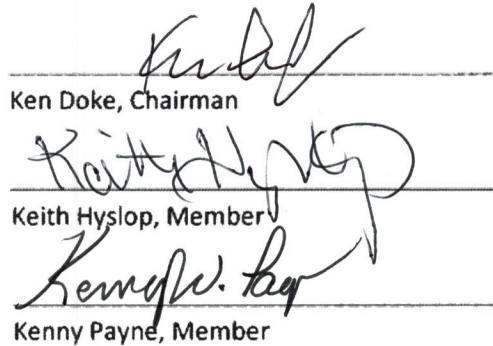 Ken Doke, Chairman
Keith Hyslop
Keith Hyslop, Member
Kenny W. Payne
Kenny Payne, Member